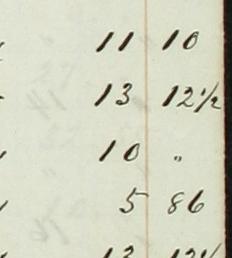 11 10
13 12½
10 "
5 86